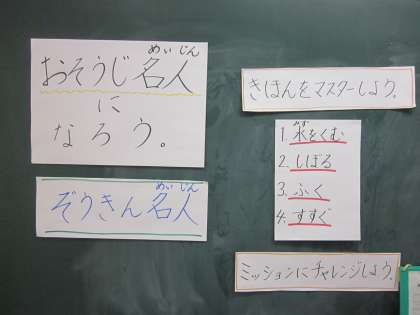 おそうじ名人
に
なろう。
ぞうきん名人
きほんをマスターしよう。
1. 水をくむ
2. しぼる
3. ふく
4. すすぐ
ミッションにチャレンジしよう。